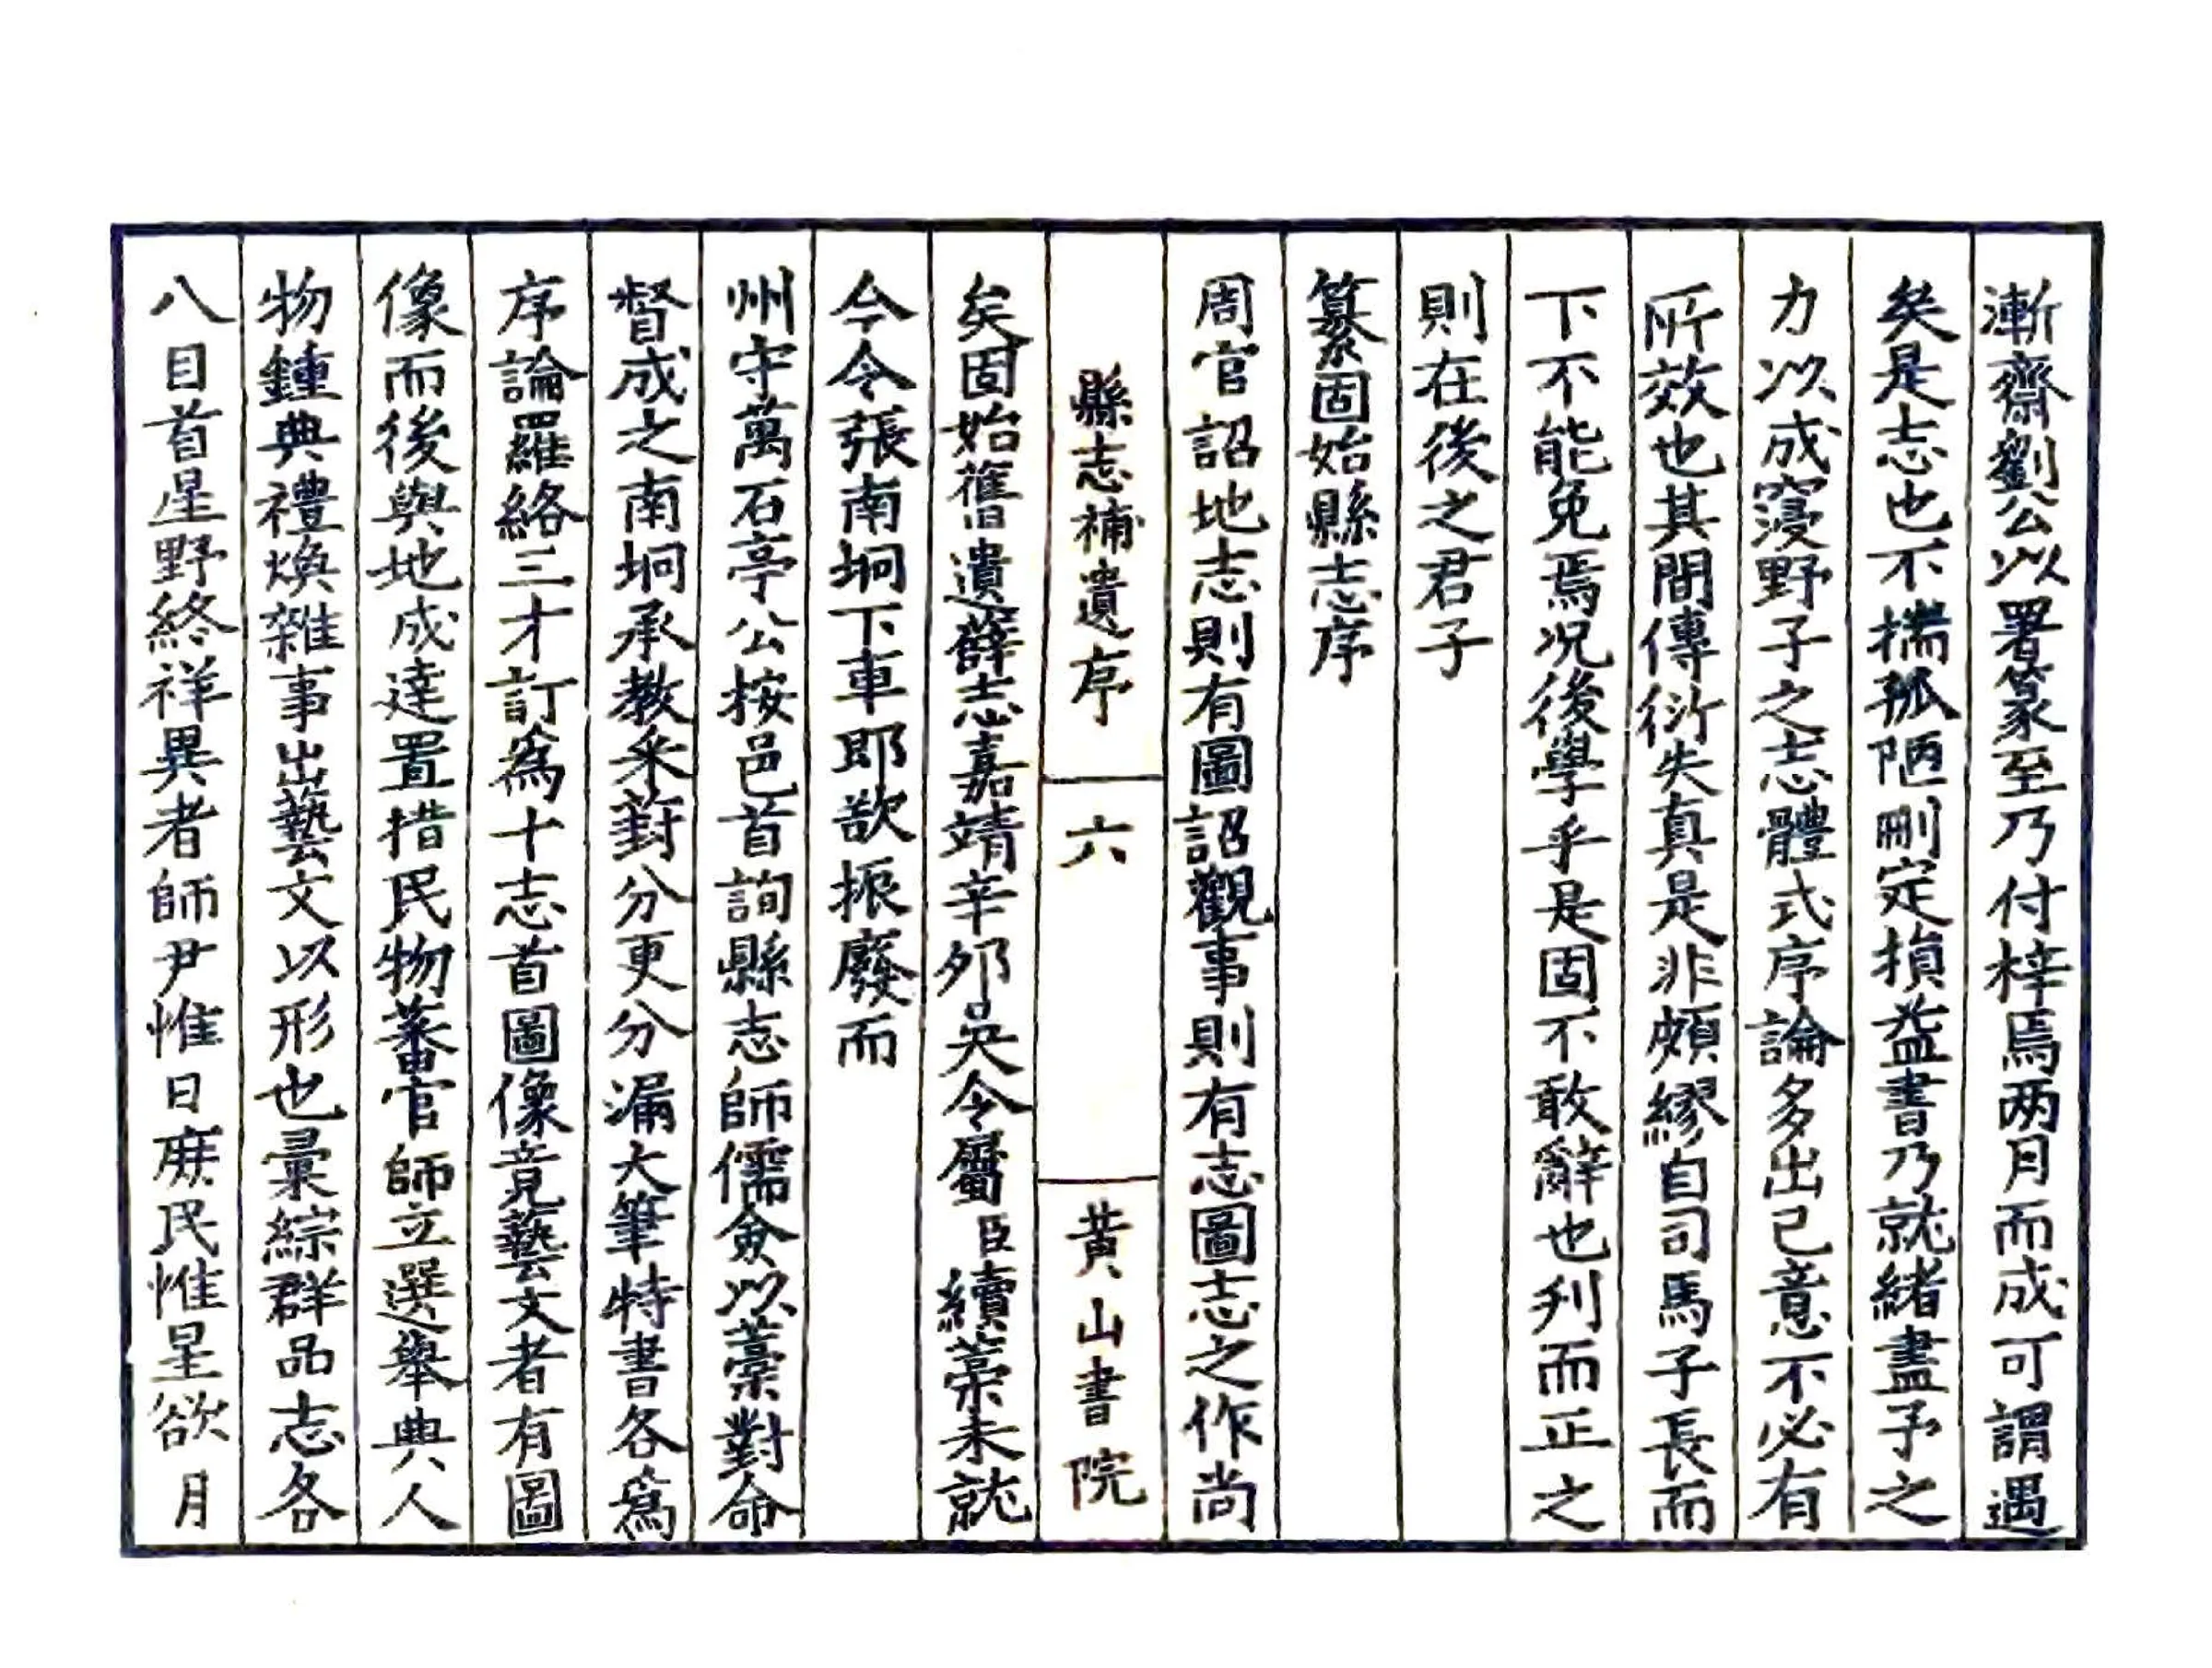 漸齋劉公以署篆至乃付梓焉两月而成可謂遇
矣是志也不揣孤陋刪定損益書乃就緒盡予之
力以成窾野子之志體式序論多出己意不必有
所效也其間傳衍失真是非頗繆自司馬子長而
下不能免焉况後學乎是固不敢辭也刋而正之
則在後之君子
篡固始縣志序
周官詔地志則有圖詔觀事則有志圖志之作尚
縣志補遺序 六 黄山書院
矣固始舊遺薛志嘉靖辛夘吳令屬臣續藁未就
今令張南坰下車即欲振廢而
州守萬石亭公按邑首詢縣志師儒僉以藁對命
督成之南坰承教采葑分更分漏大筆特書各爲
序論羅絡三才訂爲十志首圖像竟藝文者有圖
像而後與地成達置措民物蕃官師立選舉典人
物鍾典禮煥雜事出藝文以形也彙綜群品志各
八目首星野終祥異者師尹惟日庶民惟星欲月